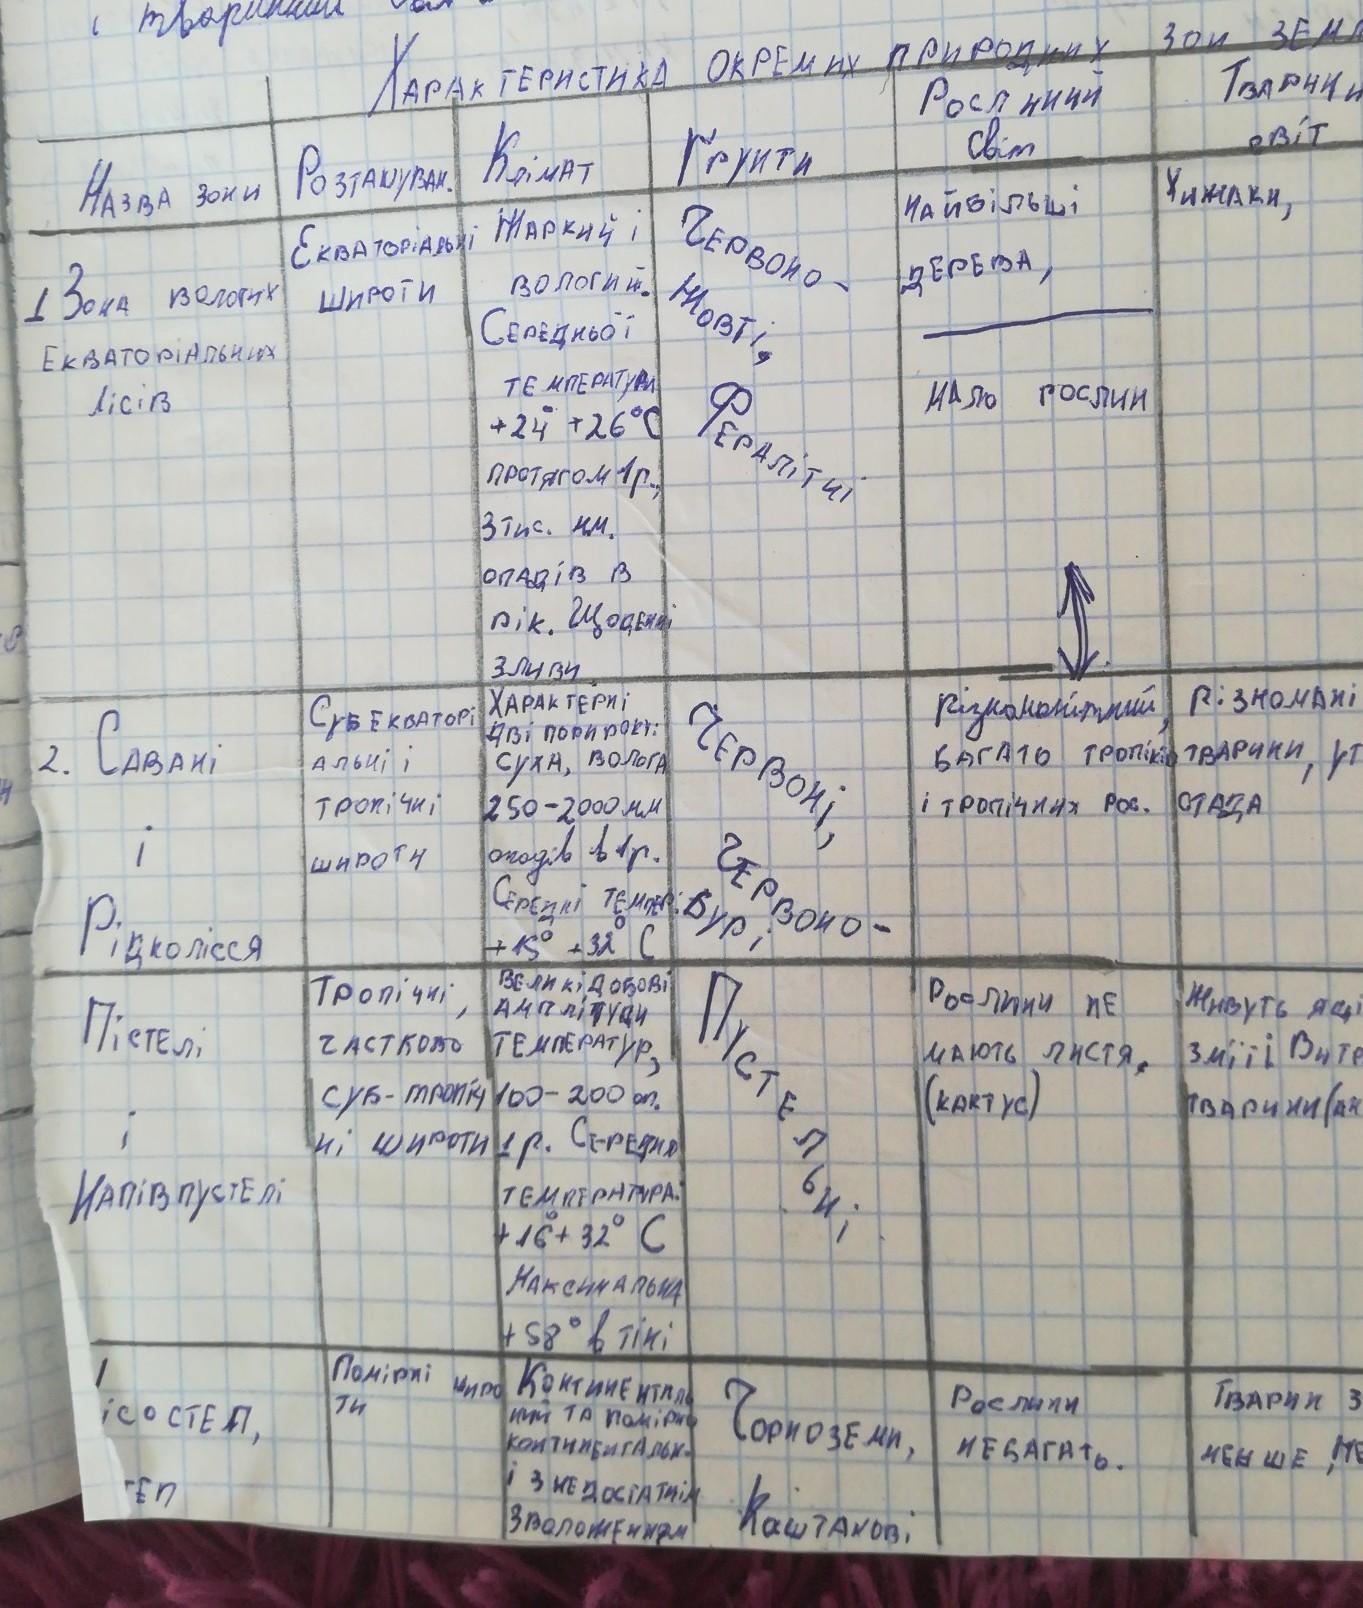 і тваринний
Характеристика окремих природних зон Земл
Назва зони
Розташуван.
Клімат
Ґрунти
Рослиний
світ
Тварини
світ
1 Зона вологих
екваторіальних
лісів
Екваторіальні
широти
Жаркий і
вологий.
Середньої
температури
+24° +26°C
протягом 1р.,
3 тис. мм.
опадів в
рік. Щоденні
зливи
Червоно-
жовті,
Фералітні
Найбільші
дерева,
мало рослин
Хижаки,
2. Савані
і
Рідколісся
Субекваторі
альні і
тропічні
широти
Характерні
дві пори рокті:
суха, волога
250-2000 мм
опадів в 1р.
Середні темпер.
+15° +32° C
Червоні,
Червоно-
бурі
Різноманітний,
багато тропікі
і тропічних рос.
Різномані
тварини, ут
стада
Пістелі
і
Напівпустелі
Тропічні,
частково
суб-тропіч
ні широти
Великі добові
амплітуди
температур,
100-200 оп.
1р. Середня
температура.
+16°+32° C
Максимальна
+58° в тіні
Пустельні
Рослини не
мають листя,
(кактус)
Живуть ящі
змії і Витр
тварини (ан
ісостеп,
теп
Помірні широ
ти
Континенталь
ний та помірно
континентальн.
і з недостатнім
зволоженням
Чорноземи,
Каштанові
Рослини
небагать.
Тварин з
менше, не